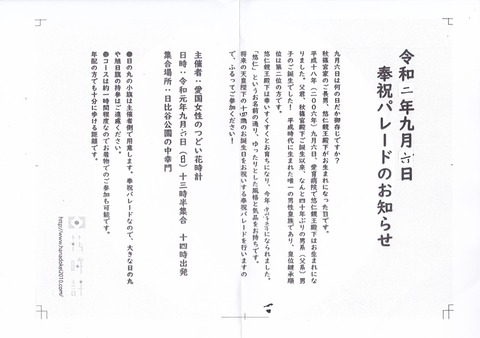 令和二年九月六日
奉祝パレードのお知らせ
九月六日は何の日だか御存じですか?
秋篠宮家のご長男、悠仁親王殿下がお生まれになった日です。
平成十八年(二〇〇六年)九月六日、愛育病院で悠仁親王殿下はお生まれにな
りました。父君、秋篠宮殿下ご誕生以来、なんと四十年ぶりの男系(父系)男
子のご誕生でした!平成時代に生まれた唯一の男性皇族であり、皇位継承順
位は第二位の方です。
悠仁親王殿下は幸いすくすくとお育ちになり、今年
になられました。
「悠仁」というお名前の通り、ゆったりとした風格と気品をお持ちです。
将来の天皇陛下の十四歳のお誕生日をお祝いする奉祝パレードを行いますの
で、ふるってご参加ください!
主催者:愛国女性のつどい花時計
日時:令和元年九月六日(日)十三時半集合 十四時出発
集合場所:日比谷公園の中幸門
●日の丸の小旗は主催者側で用意します。奉祝パレードなので、大きな日の丸
や旭日旗の持参はご遠慮ください。
●コースは約一時間程度なのでお着物でのご参加も可能です。
年配の方でも十分に歩ける距離です。
http://www.hanadokei2010.com/